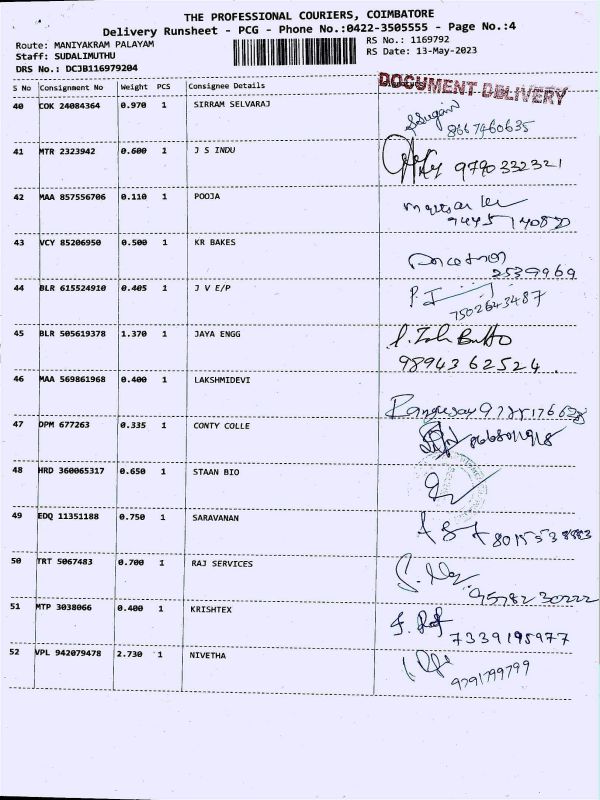 THE PROFESSIONAL COURIERS, COIMBATORE
Delivery Runsheet - PCG - Phone No.:0422-3505555 - Page No.:4
Route: MANIYAKRAM PALAYAM
RS No.: 1169792
Staff: SUDALIMUTHU
RS Date: 13-May-2023
DRS No.: DCJB116979204
DOCUMENT DELIVERY
S No Consignment No Weight PCS Consignee Details
40 COK 24084364 0.970 1 SIRRAM SELVARAJ
8667460635
41 MTR 2323942 0.600 1 J S INDU
9790332321
42 MAA 857556706 0.110 1 POOJA
43 VCY 85206950 0.500 1 KR BAKES
2539969
44 BLR 615524910 0.405 1 J V E/P
7502643487
45 BLR 505619378 1.370 1 JAYA ENGG
9894362524.
46 MAA 569861968 0.400 1 LAKSHMIDEVI
47 DPM 677263 0.335 1 CONTY COLLE
48 HRD 360065317 0.650 1 STAAN BIO
49 EDQ 11351188 0.750 1 SARAVANAN
50 TRT 5067483 0.700 1 RAJ SERVICES
9578230222
51 MTP 3038066 0.400 1 KRISHTEX
7339195977
52 VPL 942079478 2.730 1 NIVETHA
9791799799